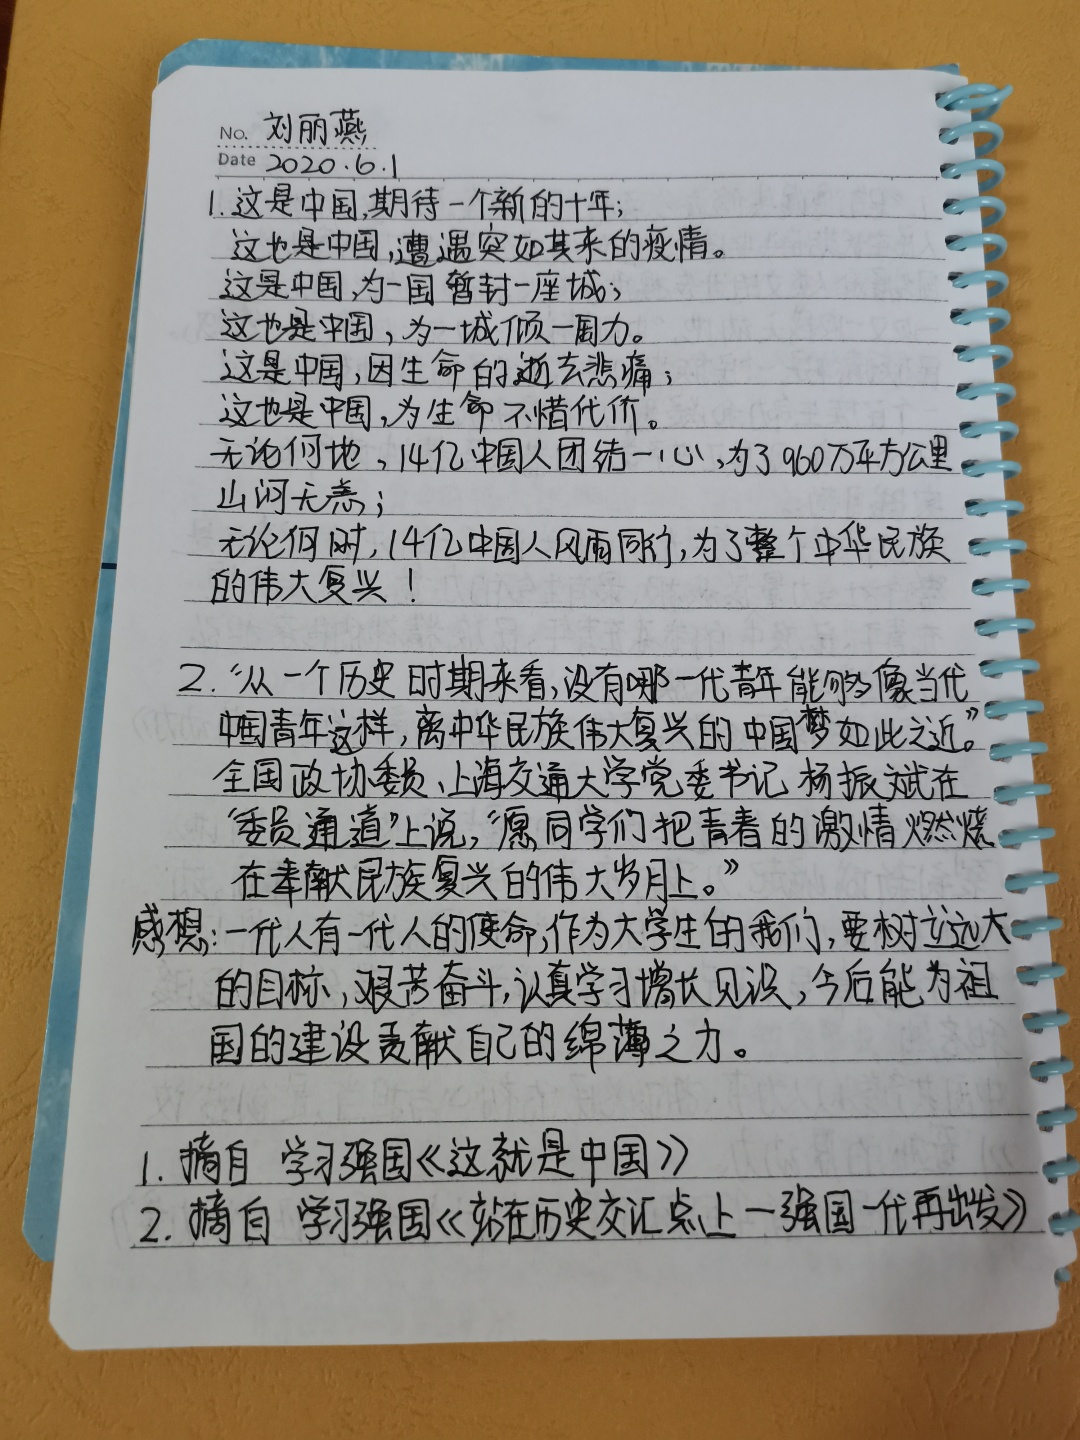 No. 刘丽燕
Date 2020.6.1
1. 这是中国,期待一个新的十年;
这也是中国,遭遇突如其来的疫情。
这是中国,为一国暂封一座城;
这也是中国,为一城倾一国力。
这是中国,因生命的逝去悲痛;
这也是中国,为生命不惜代价。
无论何地,14亿中国人团结一心,为了960万平方公里
山河无恙;
无论何时,14亿中国人风雨同行,为了整个中华民族
的伟大复兴!
2. “从一个历史时期来看,没有哪一代青年能够像当代
中国青年这样,离中华民族伟大复兴的中国梦如此之近。”
全国政协委员、上海交通大学党委书记杨振斌在
“委员通道”上说,“愿同学们把青春的激情燃烧
在奉献民族复兴的伟大岁月上。”
感想:一代人有一代人的使命,作为大学生的我们,要树立远大
的目标,艰苦奋斗,认真学习增长见识,今后能为祖
国的建设贡献自己的绵薄之力。
1. 摘自 学习强国《这就是中国》
2. 摘自 学习强国《站在历史交汇点上一强国一代再出发》